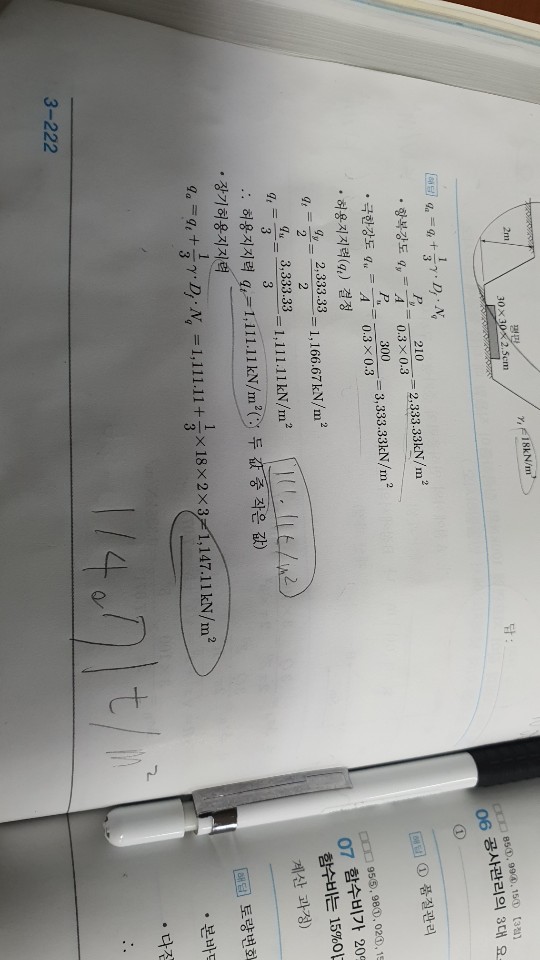 2m
평판
30×30×2.5cm
γ₁=18kN/m³
답 :
해답 qₐ = qₜ + 1/3 γ · D_f · N_q
• 항복강도 q_y = P_y/A = 210/(0.3×0.3) = 2,333.33kN/m²
• 극한강도 q_u = P_u/A = 300/(0.3×0.3) = 3,333.33kN/m²
• 허용지지력(qₜ) 결정
qₜ = q_y/2 = 2,333.33/2 = 1,166.67kN/m²
qₜ = q_u/3 = 3,333.33/3 = 1,111.11kN/m²
111.11t/m²
∴ 허용지지력 qₜ = 1,111.11kN/m²(∵ 두 값 중 작은 값)
• 장기허용지지력
qₐ = qₜ + 1/3 γ · D_f · N_q = 1,111.11 + 1/3 × 18 × 2 × 3 = 1,147.11kN/m²
114.71t/m²
3-222
06 공사관리의 3대 요
해답 ① 품질관리
①
07 함수비가 20%
함수비는 15%이
계산 과정)
해답 토량변화
• 본바
• 다짐
∴